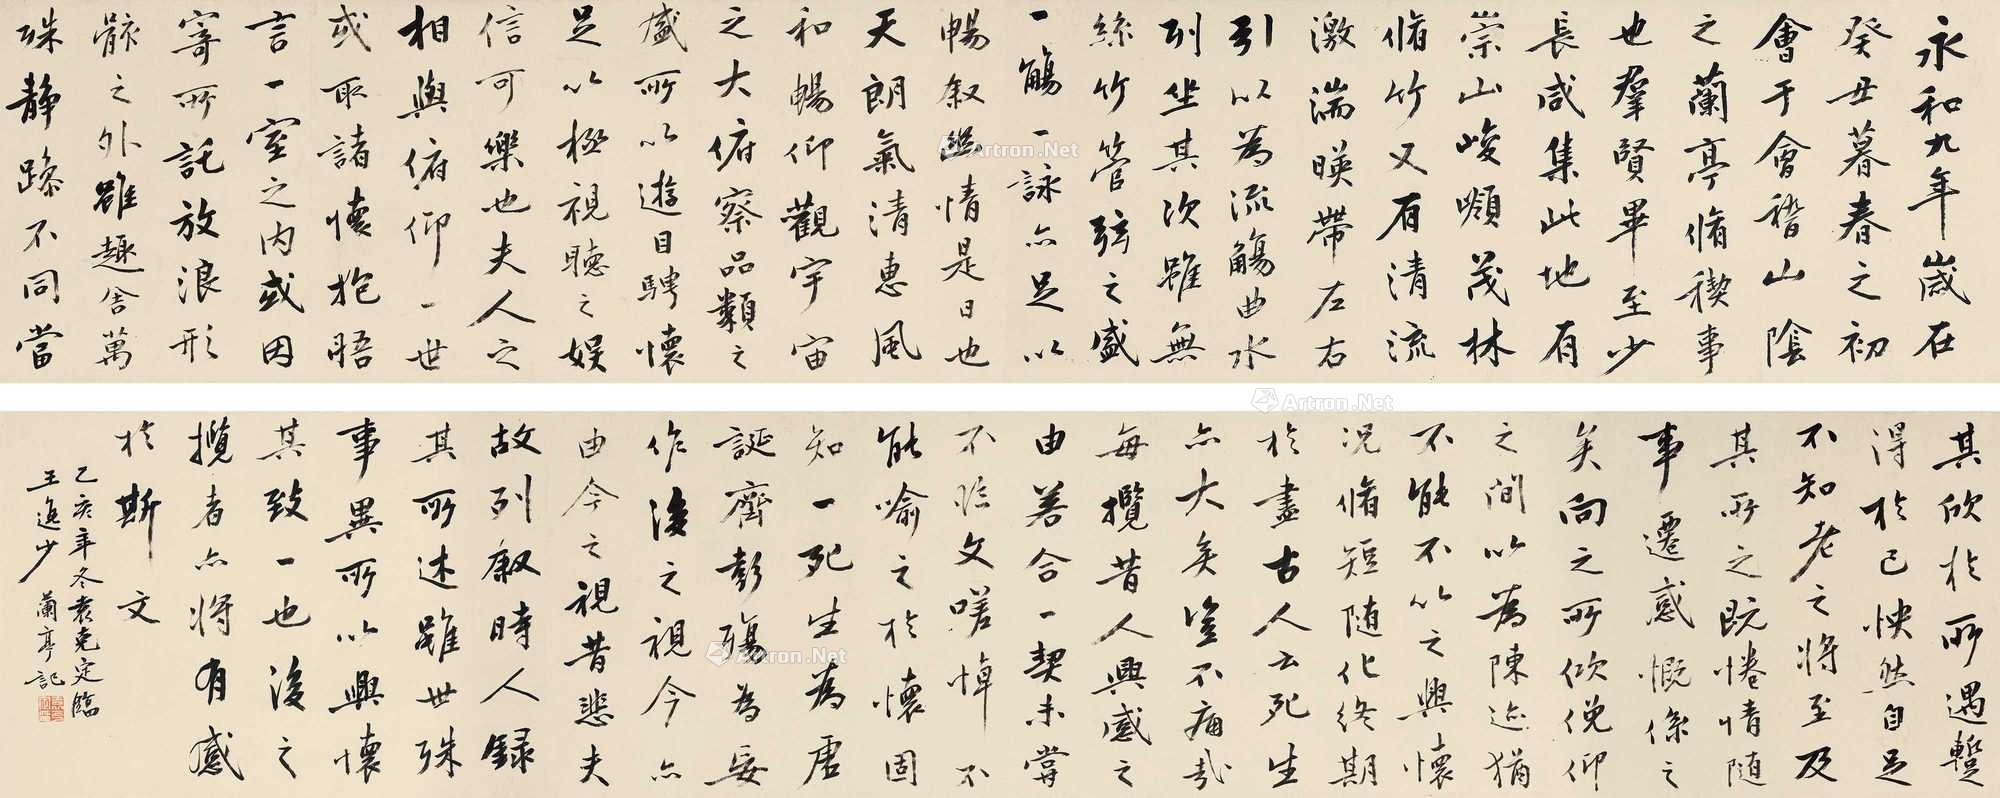 永和九年歲在
癸丑暮春之初
會于會稽山陰
之蘭亭脩稧事
也羣賢畢至少
長咸集此地有
崇山峻領茂林
脩竹又有清流
激湍暎帶左右
引以為流觴曲水
列坐其次雖無
絲竹管弦之盛
一觴一詠亦足以
暢叙幽情是日也
天朗氣清惠風
和暢仰觀宇宙
之大俯察品類之
盛所以遊目騁懷
足以極視聽之娛
信可樂也夫人之
相與俯仰一世
或取諸懷抱晤
言一室之內或因
寄所託放浪形
骸之外雖趣舍萬
殊靜躁不同當
其欣於所遇蹔
得於己怏然自足
不知老之將至及
其所之既惓情隨
事遷感慨係之
矣向之所欣俛仰
之間以為陳迹猶
不能不以之興懷
況脩短隨化終期
於盡古人云死生
亦大矣豈不痛哉
每攬昔人興感之
由若合一契未嘗
不臨文嗟悼不
能喻之於懷固
知一死生為虛
誕齊彭殤為妄
作後之視今亦
由今之視昔悲夫
故列敘時人錄
其所述雖世殊
事異所以興懷
其致一也後之
攬者亦將有感
於斯文
乙亥年冬袁克定臨
王逸少蘭亭記
Artron.Net
Artron.Net
Artron.Net
Artron.Net
Artron.Net